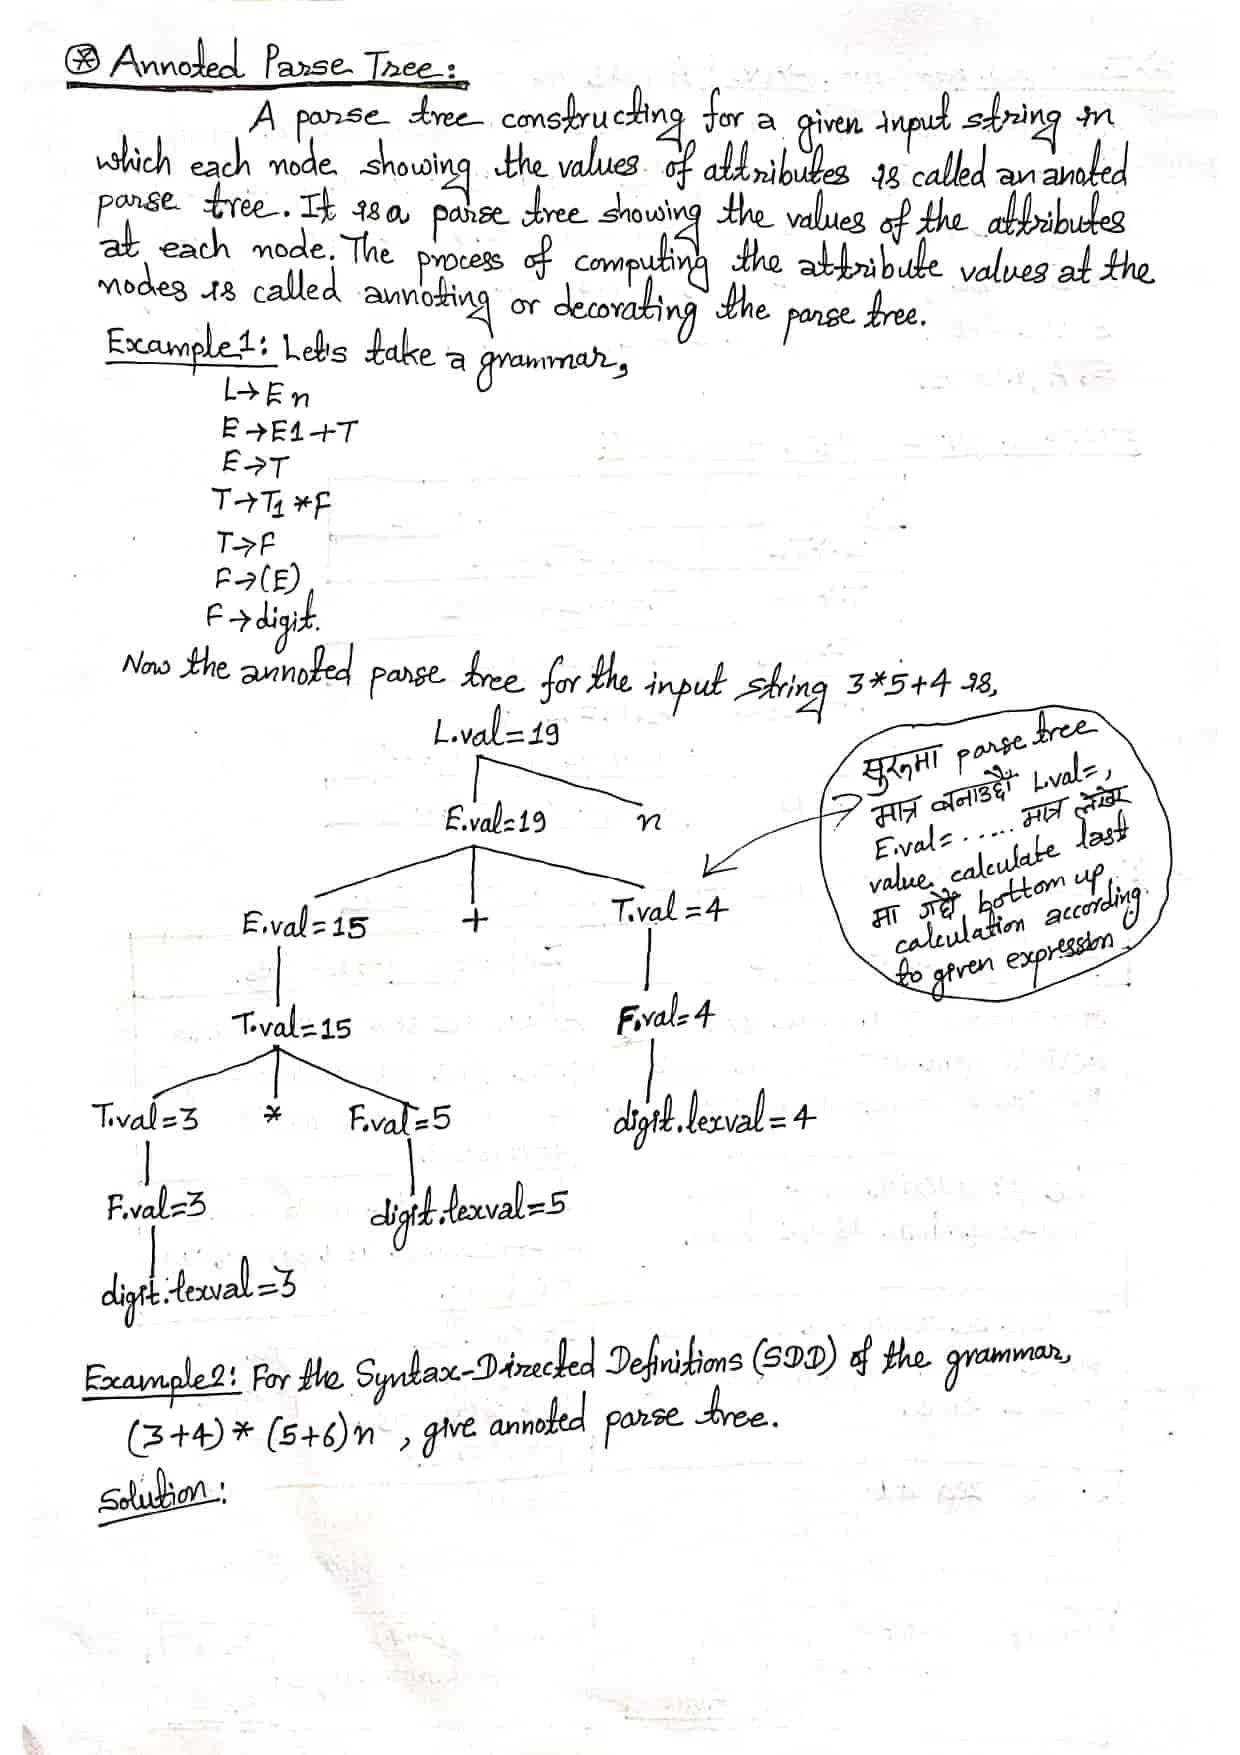 ⊛ Annoted Parse Tree:
A parse tree constructing for a given input string in
which each node showing the values of attributes is called an anoted
parse tree. It is a parse tree showing the values of the attributes
at each node. The process of computing the attribute values at the
nodes is called annoting or decorating the parse tree.
Example1: Let's take a grammar,
L→En
E→E1+T
E→T
T→T1*F
T→F
F→(E)
F→digit.
Now the annoted parse tree for the input string 3*5+4 is,
L.val=19
E.val=19 n
E.val=15 + T.val=4
T.val=15 F.val=4
T.val=3 * F.val=5 digit.lexval=4
F.val=3 digit.lexval=5
digit.lexval=3
सुरुमा parse tree
मात्र बनाउदै L.val=,
E.val=..... मात्र लेखेर
value calculate last
मा गर्दै bottom up
calculation according
to given expression.
Example2: For the Syntax-Directed Definitions (SDD) of the grammar,
(3+4)*(5+6)n, give annoted parse tree.
Solution: